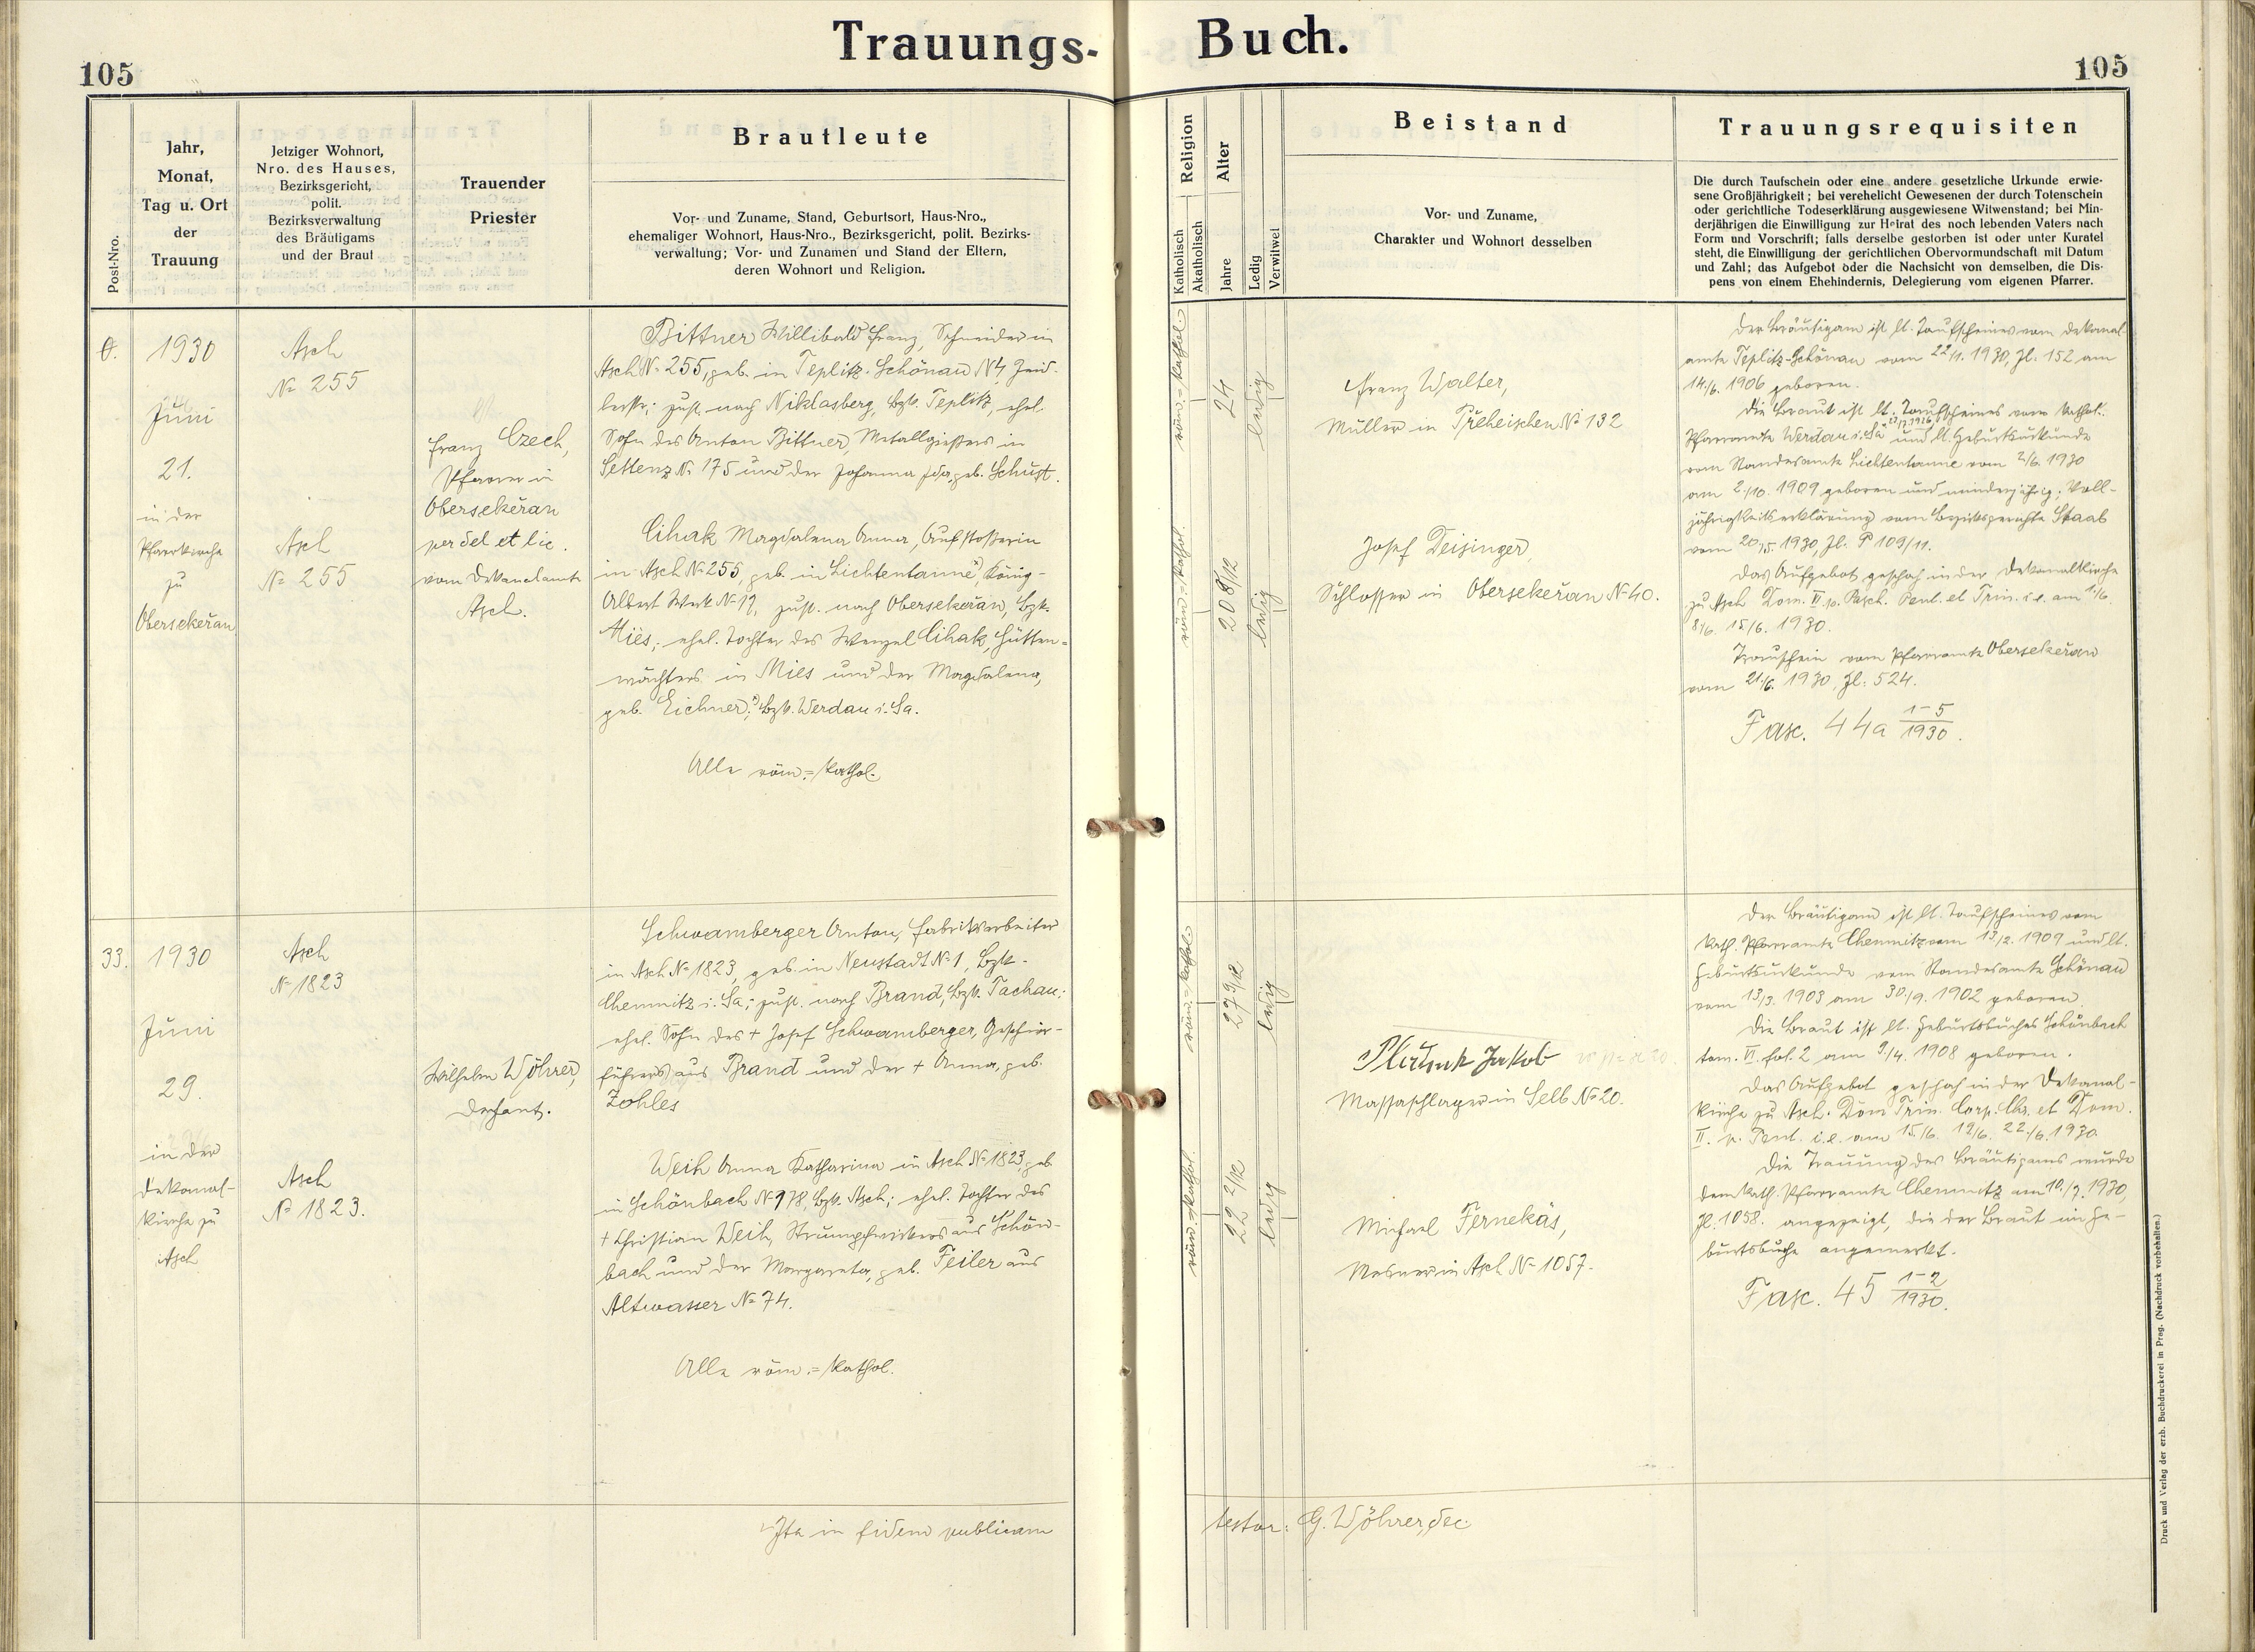 Trauungs- Buch.
105
105
Post-Nro.
Jahr,
Monat,
Tag u. Ort
der
Trauung
Jetziger Wohnort,
Nro. des Hauses,
Bezirksgericht,
polit.
Bezirksverwaltung
des Bräutigams
und der Braut
Trauender
Priester
Brautleute
Vor- und Zuname, Stand, Geburtsort, Haus-Nro.,
ehemaliger Wohnort, Haus-Nro., Bezirksgericht, polit. Bezirks-
verwaltung; Vor- und Zunamen und Stand der Eltern,
deren Wohnort und Religion.
Religion
Katholisch
Akatholisch
Alter
Jahre
Ledig
Verwitwet
Beistand
Vor- und Zuname,
Charakter und Wohnort desselben
Trauungsrequisiten
Die durch Taufschein oder eine andere gesetzliche Urkunde erwie-
sene Großjährigkeit; bei verehelicht Gewesenen der durch Totenschein
oder gerichtliche Todeserklärung ausgewiesene Witwenstand; bei Min-
derjährigen die Einwilligung zur Heirat des noch lebenden Vaters nach
Form und Vorschrift; falls derselbe gestorben ist oder unter Kuratel
steht, die Einwilligung der gerichtlichen Obervormundschaft mit Datum
und Zahl; das Aufgebot oder die Nachsicht von demselben, die Dis-
pens von einem Ehehindernis, Delegierung vom eigenen Pfarrer.
0.
1930
Juni
21.
in der
Pfarrkirche
zu
Obersekeřan
Asch
№ 255
Asch
№ 255
Franz Czech,
Pfarrer in
Obersekeřan
per del et lic.
vom Dekanalamte
Asch.
Bittner Willibald Franz, Schneider in
Asch № 255, geb. in Teplitz-Schönau № 4
; zust. nach Niklasberg, Bzk. Teplitz, ehel.
Sohn des Anton Bittner, Metallgiessers in
Settenz № 175 und der Johanna Ida, geb. Schust.
Cihak Magdalena Anna, Aufstosserin
in Asch № 255, geb. in Lichtentanne, König-
Albert Werk № 19, zust. nach Obersekeřan, Bzk.
Mies; ehel. Tochter des Wenzel Cihak, Hütten-
wächters in Mies und der Magdalena,
geb. Eichner; Bzk. Werdau i. Sa.
Alle röm.=kathol.
röm.=kathol.
24
ledig
röm.=kathol.
20 8/12
ledig
Franz Walter,
Müller in Přeheischen № 132
Josef Deisinger,
Schlosser in Obersekeřan № 40.
Der Bräutigam ist lt. Taufscheines vom Dekanal-
amte Teplitz-Schönau vom 22/1. 1930, Zl. 152 am
14./6. 1906 geboren.
Die Braut ist lt. Taufscheines vom kathol.
Pfarramte Werdau i. Sa und lt. Geburtsurkunde
vom Standesamte Lichtentanne vom 2/6. 1930
am 2./10. 1909 geboren und minderjährig; Voll-
jährigkeitserklärung vom Bezirksgerichte Staab
vom 20./5. 1930, Zl. P 109/11.
Das Aufgebot geschah in der Dekanalkirche
zu Asch Dom. p. Pasch. Pent. et Trin. i.e. am 1./6.
8./6. 15./6. 1930.
Trauschein vom Pfarramte Obersekeřan
vom 21./6. 1930, Zl. 524.
Fasc. 44a 1-5/1930.
33.
1930
Juni
29.
in der
Dekanal-
kirche zu
Asch
Asch
№ 1823
Asch
№ 1823.
Wilhelm Wöhrer,
Dechant.
Schwamberger Anton, Fabriksarbeiter
in Asch № 1823, geb. in Neustadt № 1, Bzk.
Chemnitz i. Sa; zust. nach Brand, Bzk. Tachau;
ehel. Sohn des + Josef Schwamberger, Geschirr-
führers aus Brand und der + Anna, geb.
Zohles
Weih Anna Katharina in Asch № 1823, geb.
in Schönbach № 178, Bzk. Asch; ehel. Tochter des
+ Christian Weih, Strumpfwirkers aus Schön-
bach und der Margareta, geb. Feiler aus
Altwasser № 74.
Alle röm.=kathol.
röm.=kathol.
27 9/12
ledig
röm.=kathol.
22 2/12
ledig
Jakob
Massaschlager in Selb № 20.
Michael Fernekäs,
Mesner in Asch № 1057.
Der Bräutigam ist lt. Taufscheines vom
kath. Pfarramte Chemnitz vom 13/2. 1909 und lt.
Geburtsurkunde vom Standesamte Schönau
vom 13/3. 1903 am 30./9. 1902 geboren.
Die Braut ist lt. Geburtsbuches Schönbach
tom. VI. fol. 2 am 9./4. 1908 geboren.
Das Aufgebot geschah in der Dekanal-
kirche zu Asch. Dom Trin. Corp. Chr. et Dom.
II. p. Pent. i.e. am 15./6. 19./6. 22./6. 1930
Die Trauung des Bräutigams wurde
dem kath. Pfarramte Chemnitz am 10./7. 1930,
Zl. 1058. angezeigt, die der Braut im Ge-
burtsbuche angemerkt.
Fasc. 45 1-2/1930.
Ita in fidem publicam
testor: G. Wöhrer, dec.
Druck und Verlag der erzb. Buchdruckerei in Prag. (Nachdruck vorbehalten.)